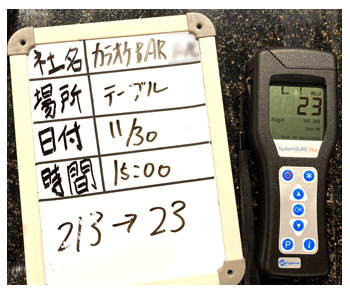 社名 カラオケBAR
場所 テーブル
日付 11/30
時間 15:00
213→23
RLU
23
SystemSURE Plus
OK
P i
Hygiena